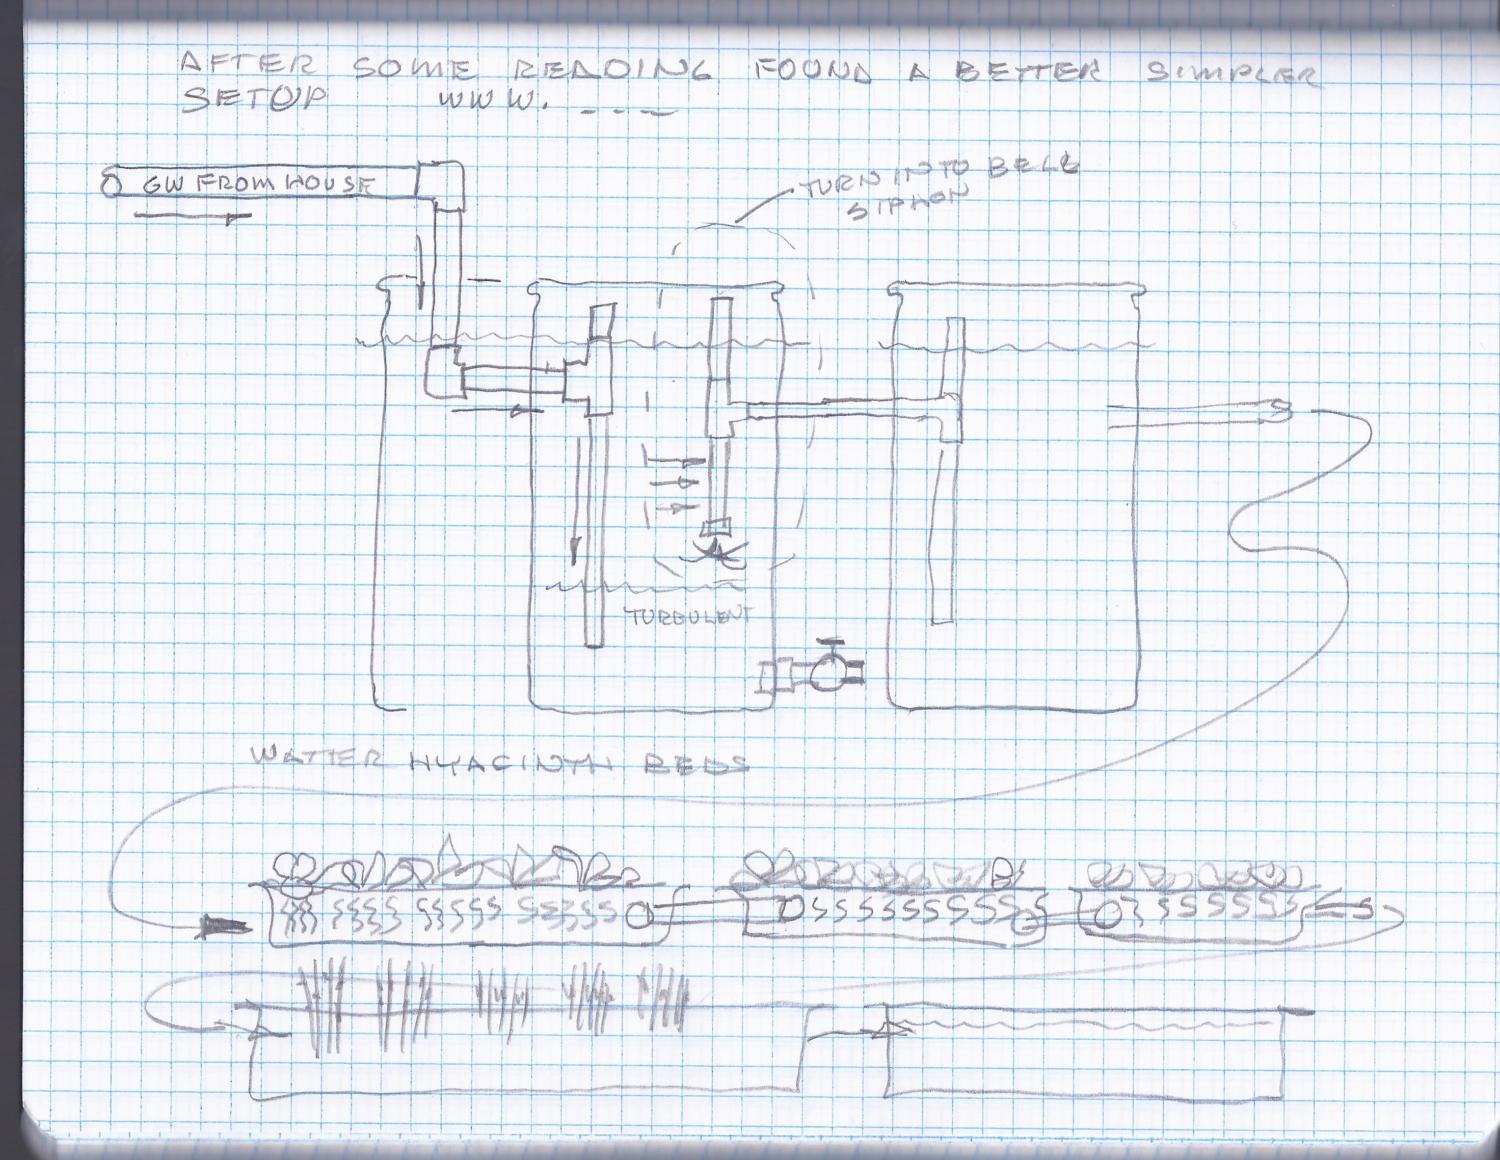 AFTER SOME READING FOUND A BETTER SIMPLER
SETUP WWW. ---
GW FROM HOUSE
TURN INTO BELL
SIPHON
TURBULENT
WATTER HYACINTH BEDS